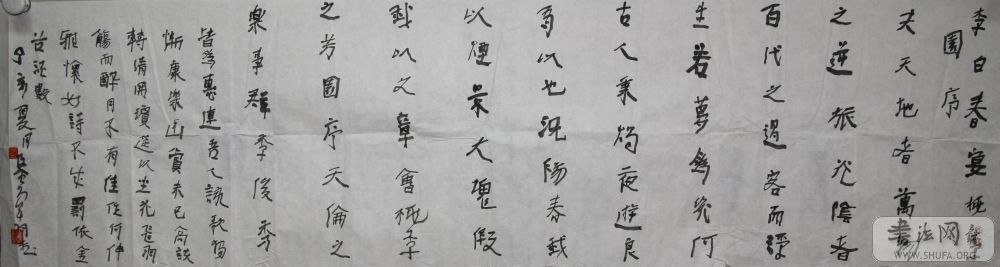 李白春宴桃
園序
夫天地者萬
之逆旅光陰者
百代之過客而浮
生若夢為歡何
古人秉燭夜遊良
有以也況陽春我
以煙景大塊假
我以文章會桃李
之芳園序天倫之
樂事群季俊秀
皆為惠連吾人詠歌獨
慚康樂幽賞未已高談
轉清開瓊筵以坐花飛羽
觴而醉月不有佳作何伸
雅懷如詩不成罰依金
谷酒數
丁亥夏月
書法网
WWW.SHUFA.ORG